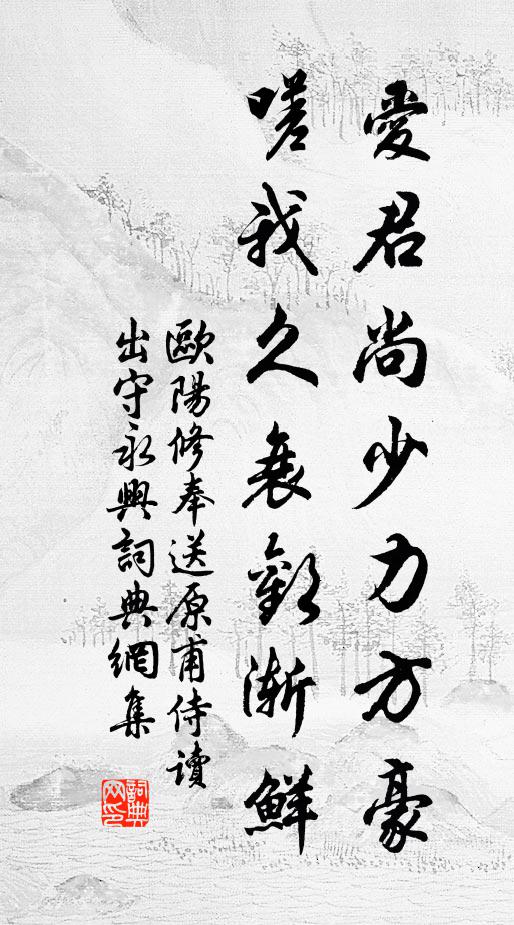 愛君尚少力方豪
嗟我久衰歡漸鮮
歐陽修奉送原甫侍讀
出守永興詞典網集
詞典
网印